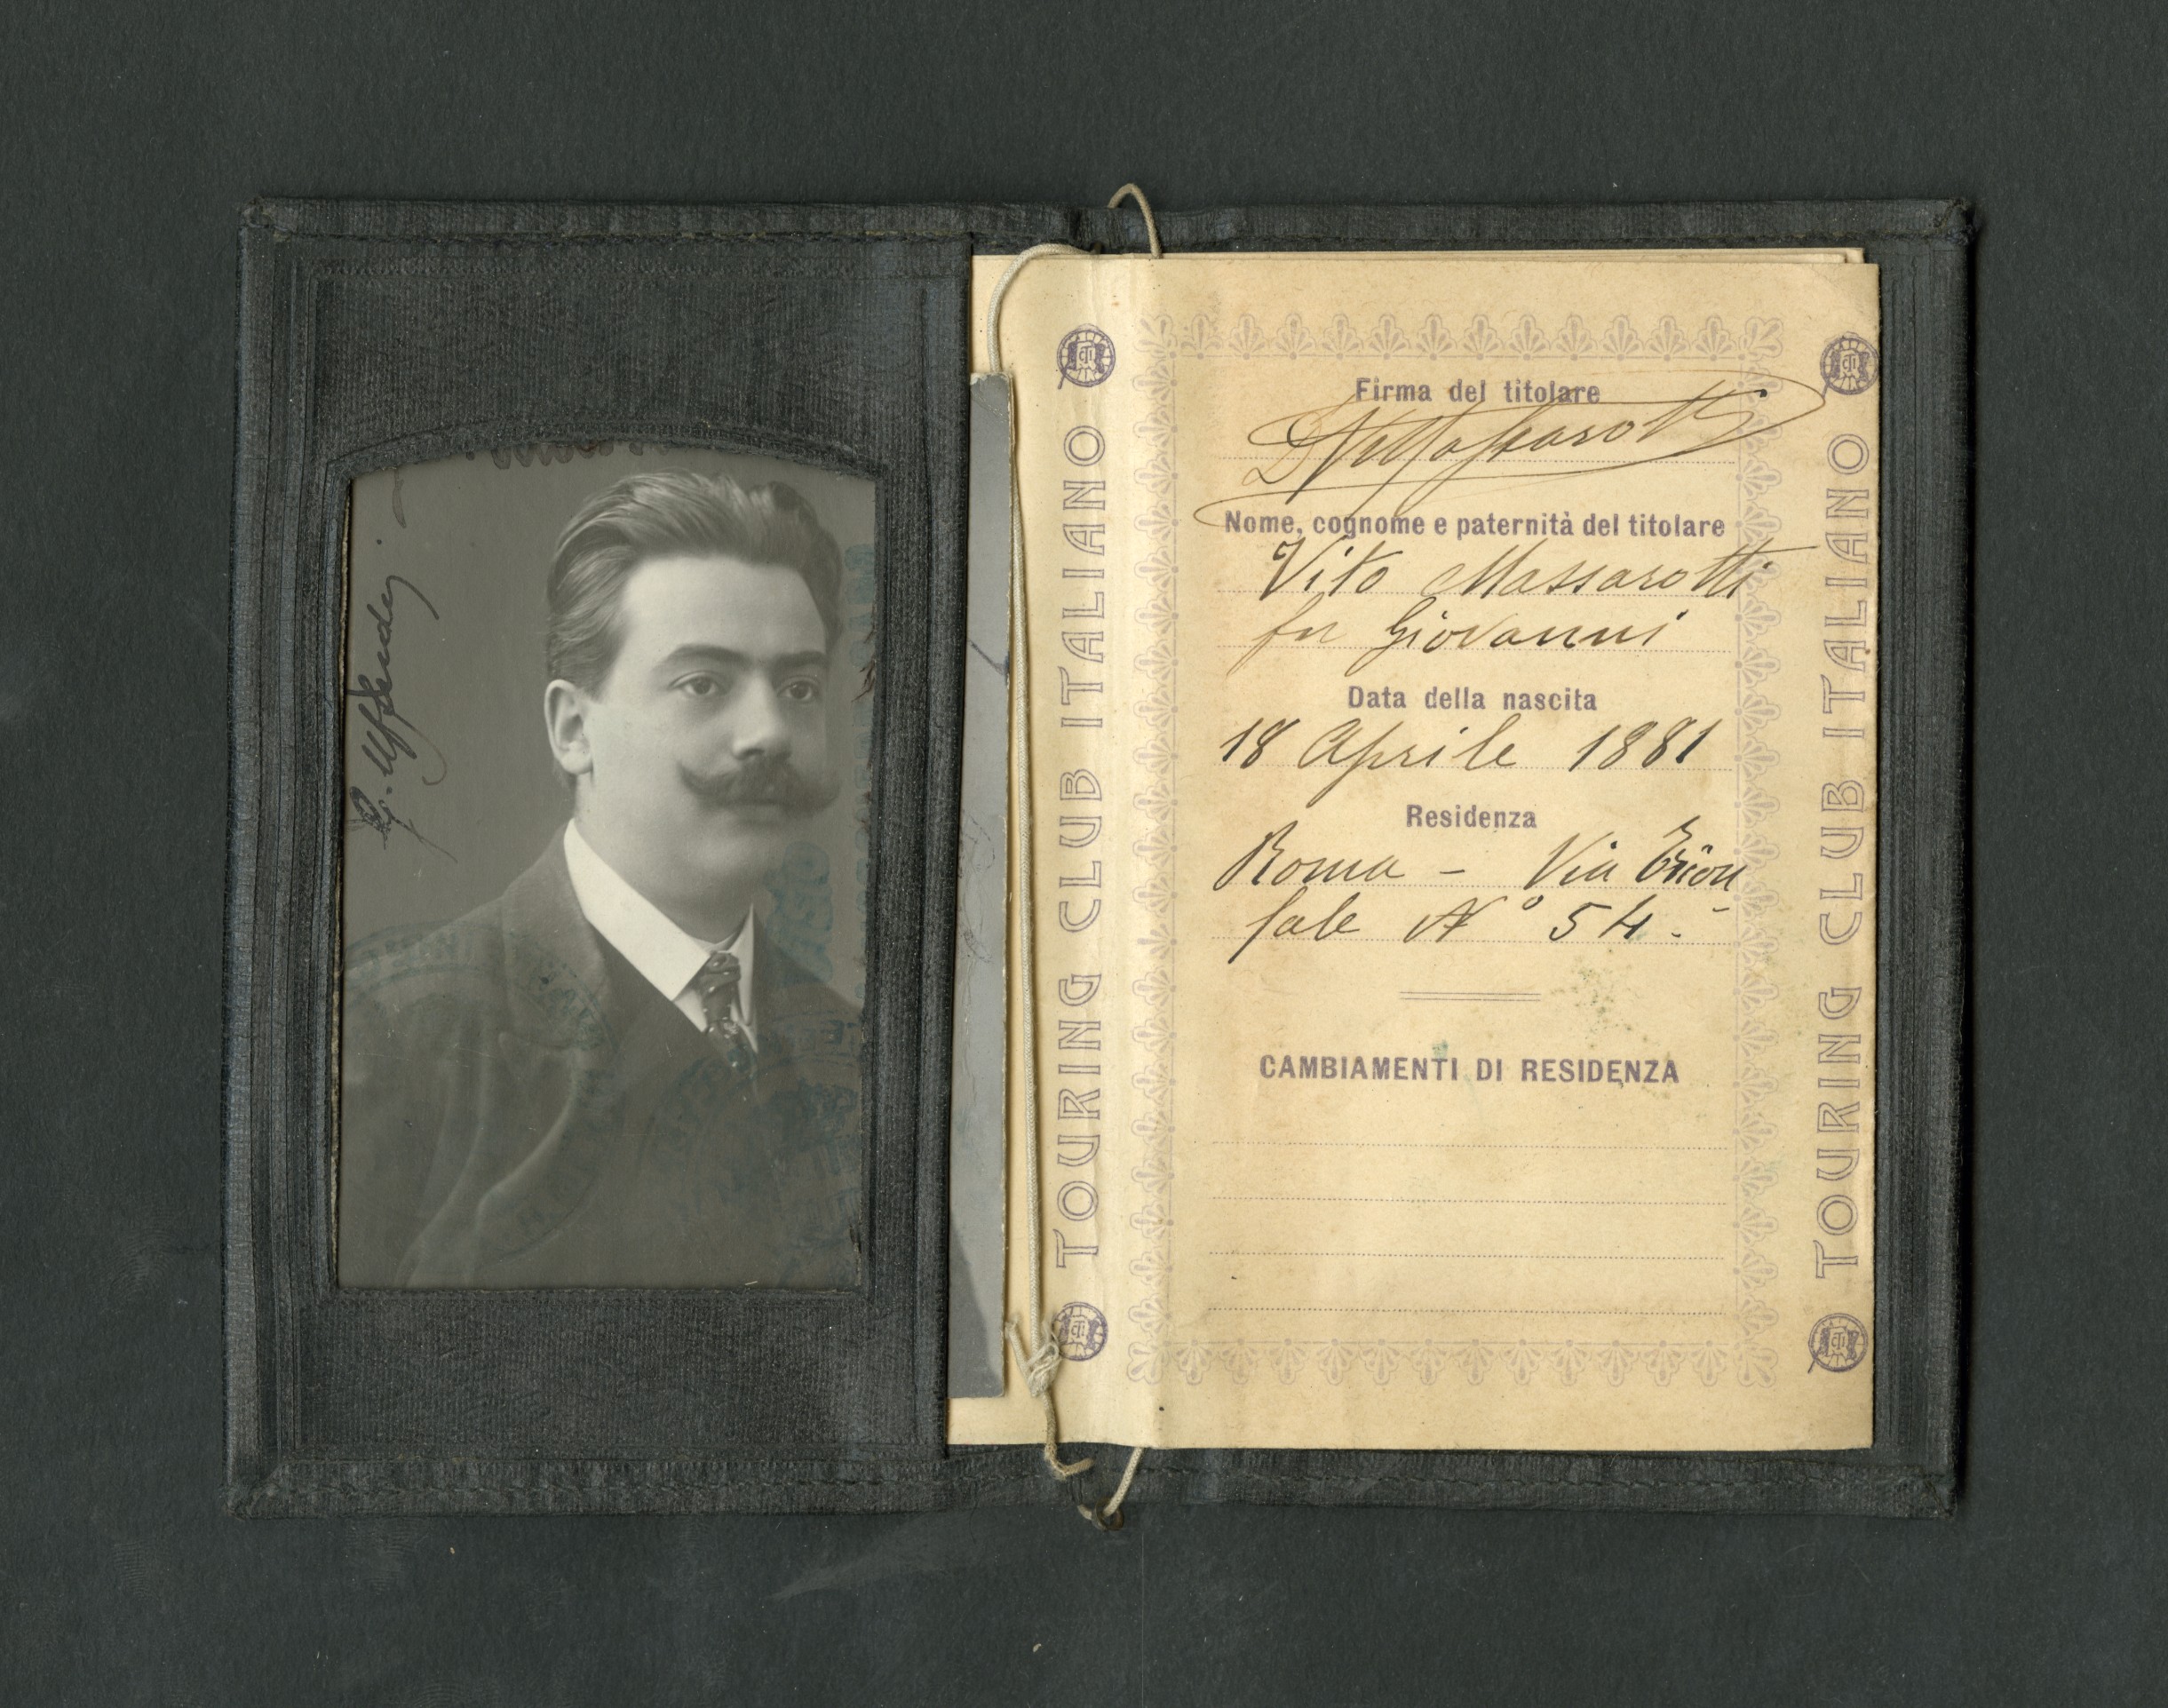 Firma del titolare
Nome, cognome e paternità del titolare
Vito Massarotti
fu Giovanni
Data della nascita
18 Aprile 1881
Residenza
Roma - Via Trion
fale N° 54.
CAMBIAMENTI DI RESIDENZA
TOURING CLUB ITALIANO
TOURING CLUB ITALIANO